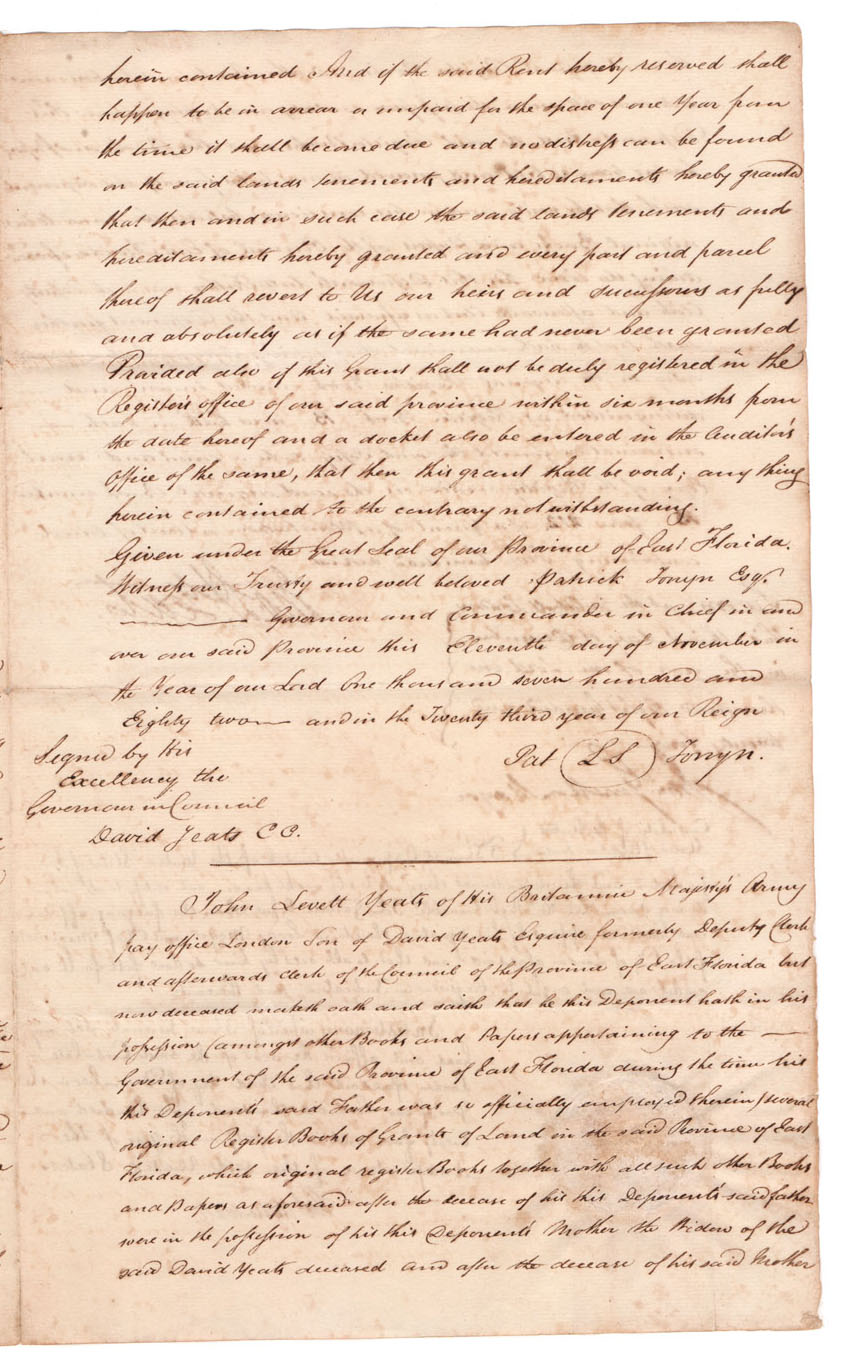 herein contained And if the said Rent hereby reserved shall
happen to be in arrear or unpaid for the space of one Year from
the time it shall become due and no distress can be found
on the said lands tenements and hereditaments hereby granted
that then and in such case the said lands tenements and
hereditaments hereby granted and every part and parcel
thereof shall revert to Us our heirs and successours as fully
and absolutely as if the same had never been granted
Provided also if this Grant shall not be duly registered in the
Register's office of our said province within six months from
the date hereof and a docket also be entered in the Auditor's
Office of the same, that then this grant shall be void; any thing
herein contained to the contrary notwithstanding.
Given under the Great Seal of our Province of East Florida.
Witness our Trusty and well beloved Patrick Tonyn Esqr.
Governour and Commander in Chief in and
over our said Province this Eleventh day of November in
the Year of our Lord One thousand seven hundred and
Eighty two — and in the Twenty third year of our Reign
Signed by His
Excellency the
Governour in Council
David Yeats C C.
Pat (L S) Tonyn.
John Levett Yeats of His Britannic Majesty's Army
pay office London Son of David Yeats Esquire formerly Deputy Clerk
and afterwards Clerk of the Council of the Province of East Florida but
now deceased maketh oath and saith that he this Deponent hath in his
possession (amongst other Books and Papers appertaining to the —
Government of the said Province of East Florida during the time his
this Deponent's said Father was so officially employed therein) several
original Register Books of Grants of Land in the said Province of East
Florida, which original register Books together with all such other Books
and Papers as aforesaid after the decease of his this Deponent's said father
were in the possession of his this Deponent's Mother the Widow of the
said David Yeats deceased and after the decease of his said Mother